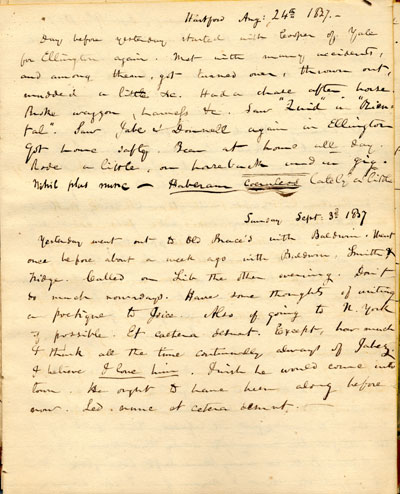 Hartford Aug: 24th 1837.-
Day before yesterday started with Cooper of Yale
for Ellington again. Met with many accidents,
and among them, got turned over, thrown out,
mudded a little &c. Had a chase after horse.
Broke waggon, harness &c. Saw
Saw Jabe & again in Ellington
Got home safly. Been at home all day.
Rode a little, on horseback and in gig.
Nihil plus nunc - Haberam lately a little
Sunday Sept: 3d 1837
Yesterday went out to Old Bruce's with Baldwin. Went
once before about a week ago with Baldwin, Smith &
Fridge. Called on the other evening. Don't
do much nowadays. Have some thoughts of writing
a poetique to Also of going to N. York
if possible. Et caetera desunt. Except, how much
I think all the time continually always of Jabez
I believe I love him. I wish he would come into
town. He ought to have been along before
now. Sed nunc et cetera desunt.